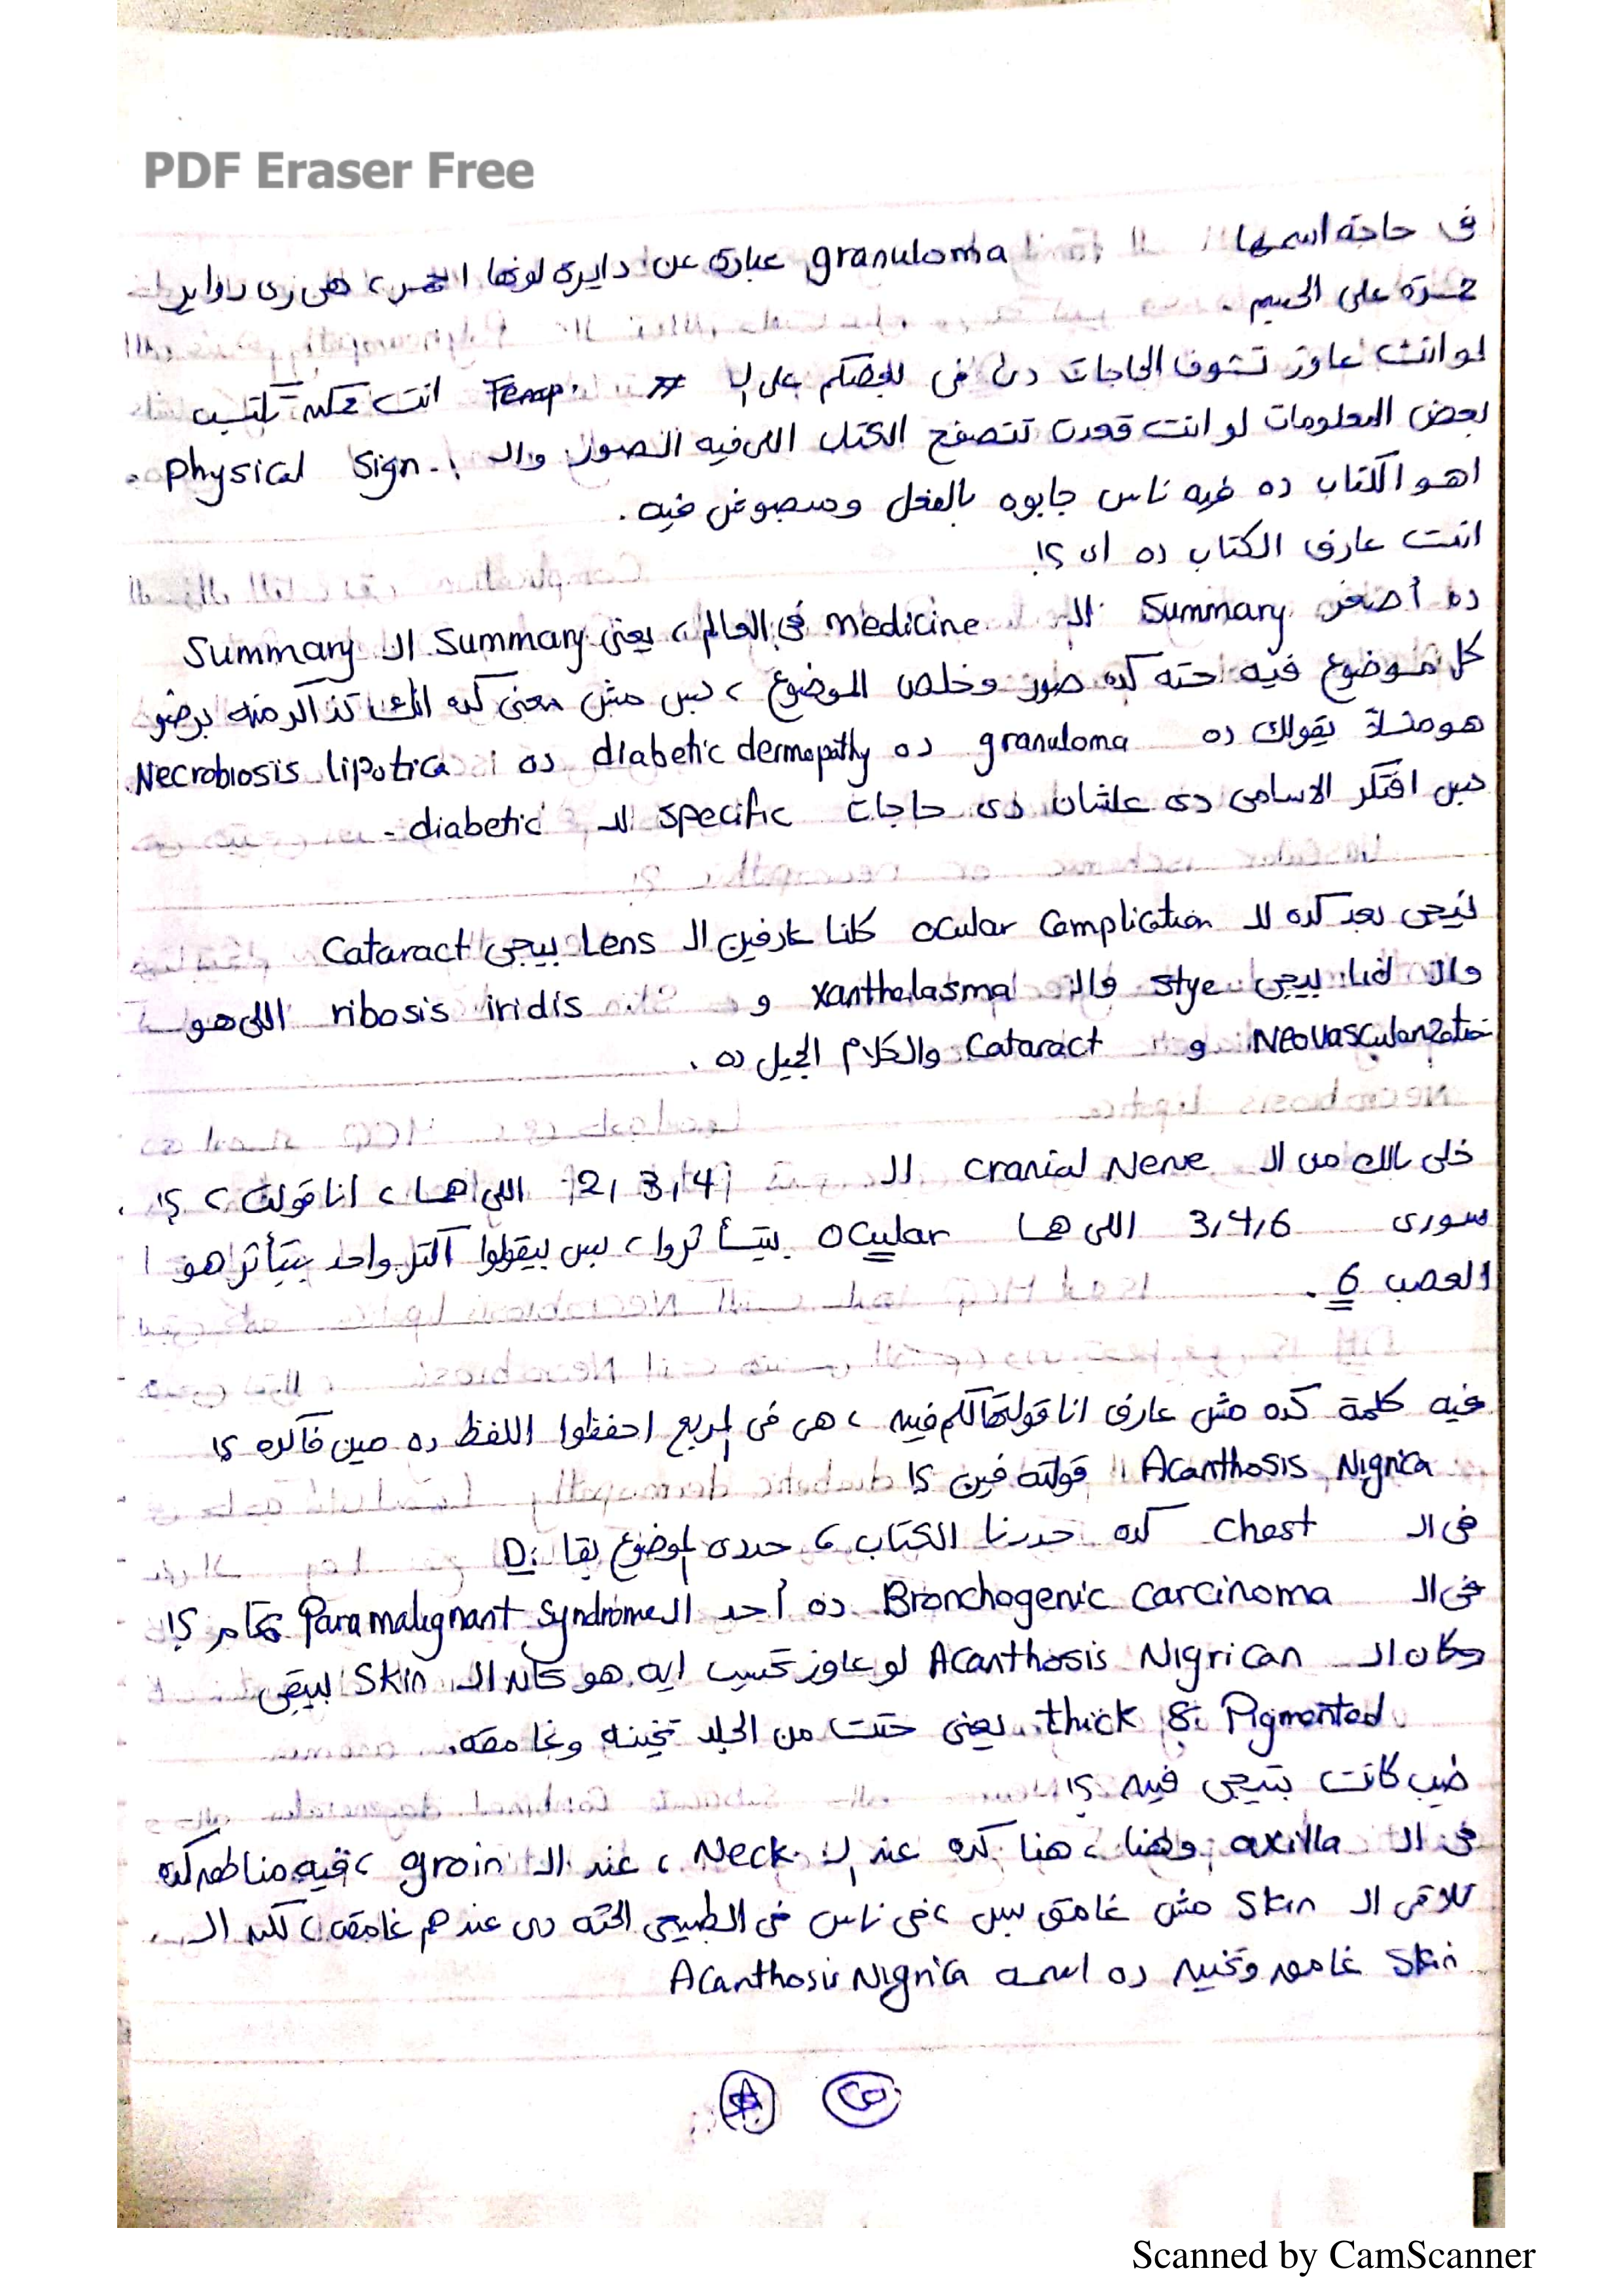 PDF Eraser Free
فى حاجة اسمها granuloma عبارة عن دايرة لونها احمر، هى زى دواير
حمرة على الجسم.
لو انت عاوز تشوف الحاجات دى فى انت ممكن تكتسب
بعض المعلومات لو انت قعدت تتصفح الكتاب اللى فيه الصور والـ Physical Sign.
اهو الكتاب ده فيه ناس جابوه بالفعل وميبصوش فيه.
انت عارف الكتاب ده اى ؟!
ده أصغر Summary للـ medicine فى العالم، يعنى Summary الـ Summary
كل موضوع فيه حته كده صور وخلص الموضوع، بس مش معنى كده انك تذاكر منه برضو
هو مثلاً يقولك ده granuloma ده diabetic dermopathy ده Necrobiosis lipotica.
بس افتكر الاسامى دى علشان دى حاجات specific للـ diabetic -
نيجى بعد كده للـ ocular Complication كلنا عارفين الـ Lens بيجى Cataract
والـ lid بيجى stye والـ xanthelasma و ribosis iridis اللى هو
Neovascularization و Cataract والكلام الجميل ده .
خلى بالك من الـ cranial Nerve الـ 2,3,4 اللى هما، انا قولت ؟!
سورى 3,4,6 اللى هما Ocular بيتأثروا، بس بيقولوا اكتر واحد بيتأثر هو
العصب 6 .
فيه كلمة كده مش عارف انا قولتهالكم فين، هى فى المربع احفظوا اللفظ ده مين فاكره ؟!
Acanthosis Nigrica قولته فين ؟!
فى الـ chest كده حددنا الكتاب، حددى الموضوع بقا :D
فى الـ Bronchogenic carcinoma ده أحد الـ Paramalignant syndrome تمام ؟!
وكان الـ Acanthosis Nigrican لو عاوز تحسب ايه هو كان الـ Skin بيبقى
thick & Pigmented يعنى حتت من الجلد تخينه وغامقه.
طيب كانت بتيجى فين ؟!
فى الـ axilla وهنا، هنا كده عند الـ Neck، عند الـ groin، فيه مناطق كده
تلاقى الـ Skin مش غامق بس، فى ناس فى الطبيعى الحته دى عندهم غامقه، لكن الـ
Skin غامق وتخين ده اسمه Acanthosis Nigrica
Scanned by CamScanner